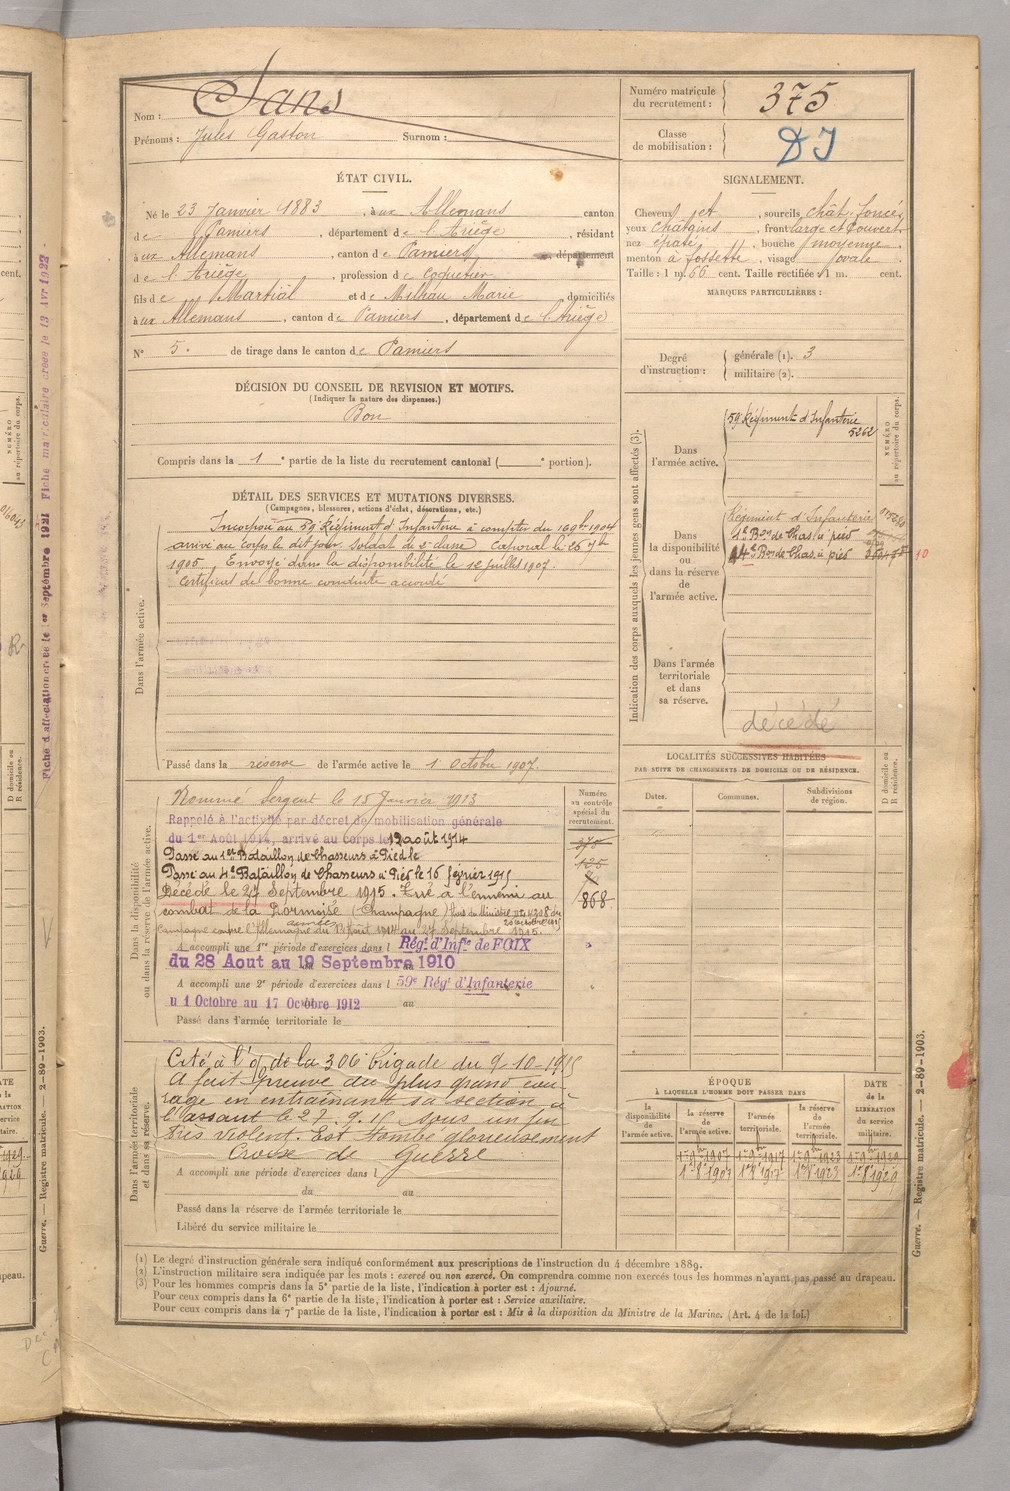 Nom : Sans
Prénoms : Jules Gaston Surnom :
Numéro matricule du recrutement : 375
Classe de mobilisation :
ÉTAT CIVIL.
Né le 23 Janvier 1883, à ux Allemans canton
de Pamiers, département de l'Ariège, résidant
à ux Allemans, canton de Pamiers, département
de l'Ariège, profession de Coquetier
fils de Martial et de Milhau Marie, domiciliés
à ux Allemans, canton de Pamiers, département de l'Ariège
N° 5. de tirage dans le canton de Pamiers
SIGNALEMENT.
Cheveux jet, sourcils chât. foncés,
yeux châtains, front large et couvert
nez épaté, bouche moyenne
menton à fossette, visage ovale
Taille : 1 m. 66 cent. Taille rectifiée : 1 m. cent.
MARQUES PARTICULIÈRES :
Degré d'instruction : générale (1). 3
militaire (2).
DÉCISION DU CONSEIL DE REVISION ET MOTIFS.
(Indiquer la nature des dispenses.)
Bon
Compris dans la 1e partie de la liste du recrutement cantonal ( e portion).
DÉTAIL DES SERVICES ET MUTATIONS DIVERSES.
(Campagnes, blessures, actions d'éclat, décorations, etc.)
Dans l'armée active.
Incorporé au 59e Régiment d'Infanterie à compter du 16 9bre 1904
arrivé au corps le dit jour, soldat de 2e classe Caporal le 26 7bre
1905. Envoyé dans la disponibilité le 12 Juillet 1907.
Certificat de bonne conduite accordé
Passé dans la réserve de l'armée active le 1 Octobre 1907.
Indication des corps auxquels les jeunes gens sont affectés (3).
NUMÉRO au répertoire du corps.
Dans l'armée active.
59e Régiment d'Infanterie
5262
Dans la disponibilité ou dans la réserve de l'armée active.
Régiment d'Infanterie
1er Bon de Chas. à pied
4e Bon de Chas. à pied
10
Dans l'armée territoriale et dans sa réserve.
décédé
LOCALITÉS SUCCESSIVES HABITÉES
PAR SUITE DE CHANGEMENTS DE DOMICILE OU DE RÉSIDENCE.
Dates. Communes. Subdivisions de région. D domicile ou R résidence.
Dans la disponibilité ou dans la réserve de l'armée active.
Numéro au contrôle spécial du recrutement.
Nommé Sergent le 15 Janvier 1913
Rappelé à l'activité par décret de mobilisation générale
du 1er Août 1914, arrivé au Corps le 13 août 1914
Passé au 1er Bataillon de Chasseurs à Pied le
Passé au 4e Bataillon de Chasseurs à Pied le 16 février 1915
Décédé le 27 Septembre 1915. Tué à l'ennemi au
868
combat de la Dormoise (Champagne)
Campagne contre l'Allemagne du 13 Août 1914 au 27 Septembre 1915.
A accompli une 1re période d'exercices dans l Régt d'Infie de FOIX
du 28 Aout au 19 Septembre 1910
A accompli une 2e période d'exercices dans l 59e Régt d'Infanterie
u 1 Octobre au 17 Octobre 1912 au
Passé dans l'armée territoriale le
Dans l'armée territoriale et dans sa réserve.
Cité à l'o/ de la 306 brigade du 9-10-1915
A fait preuve du plus grand cou-
rage en entraînant sa section à
l'assaut le 27.9.15 sous un feu
très violent. Est tombé glorieusement
Croix de Guerre
A accompli une période d'exercices dans l
du au
Passé dans la réserve de l'armée territoriale le
Libéré du service militaire le
ÉPOQUE
À LAQUELLE L'HOMME DOIT PASSER DANS
la disponibilité de l'armée active. la réserve de l'armée active. l'armée territoriale. la réserve de l'armée territoriale. DATE de la LIBÉRATION du service militaire.
1er 8bre 1907 1er 8bre 1917 1er 8bre 1923 1er 8bre 1929
(1) Le degré d'instruction générale sera indiqué conformément aux prescriptions de l'instruction du 4 décembre 1889.
(2) L'instruction militaire sera indiquée par les mots : exercé ou non exercé. On comprendra comme non exercés tous les hommes n'ayant pas passé au drapeau.
(3) Pour les hommes compris dans la 5e partie de la liste, l'indication à porter est : Ajourné.
Pour ceux compris dans la 6e partie de la liste, l'indication à porter est : Service auxiliaire.
Pour ceux compris dans la 7e partie de la liste, l'indication à porter est : Mis à la disposition du Ministre de la Marine. (Art. 4 de la loi.)
Guerre. — Registre matricule. — 2-89-1903.
Fiche d'affectation créée le 1er Septembre 1921 Fiche matriculaire créée le 13 Avr 1922
Guerre. — Registre matricule. — 2-89-1903.